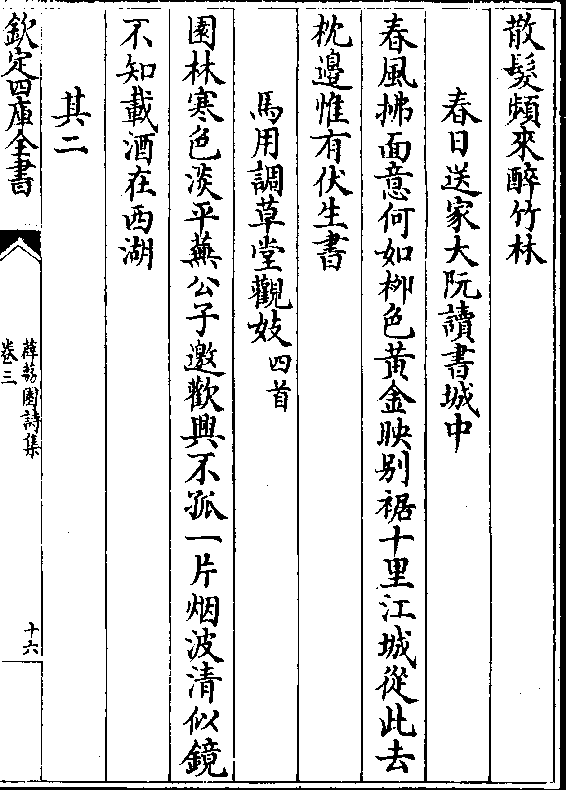 散髮頻來醉竹林
春日送家大阮讀書城中
春風拂面意何如栁色黃金映别裾十里江城從此去
枕邊惟有伏生書
馬用調草堂觀妓四首
園林寒色淡平蕪公子邀歡興不孤一片烟波清似鏡
不知載酒在西湖
其二
欽定四庫全書
薜荔園詩集
卷三
十六